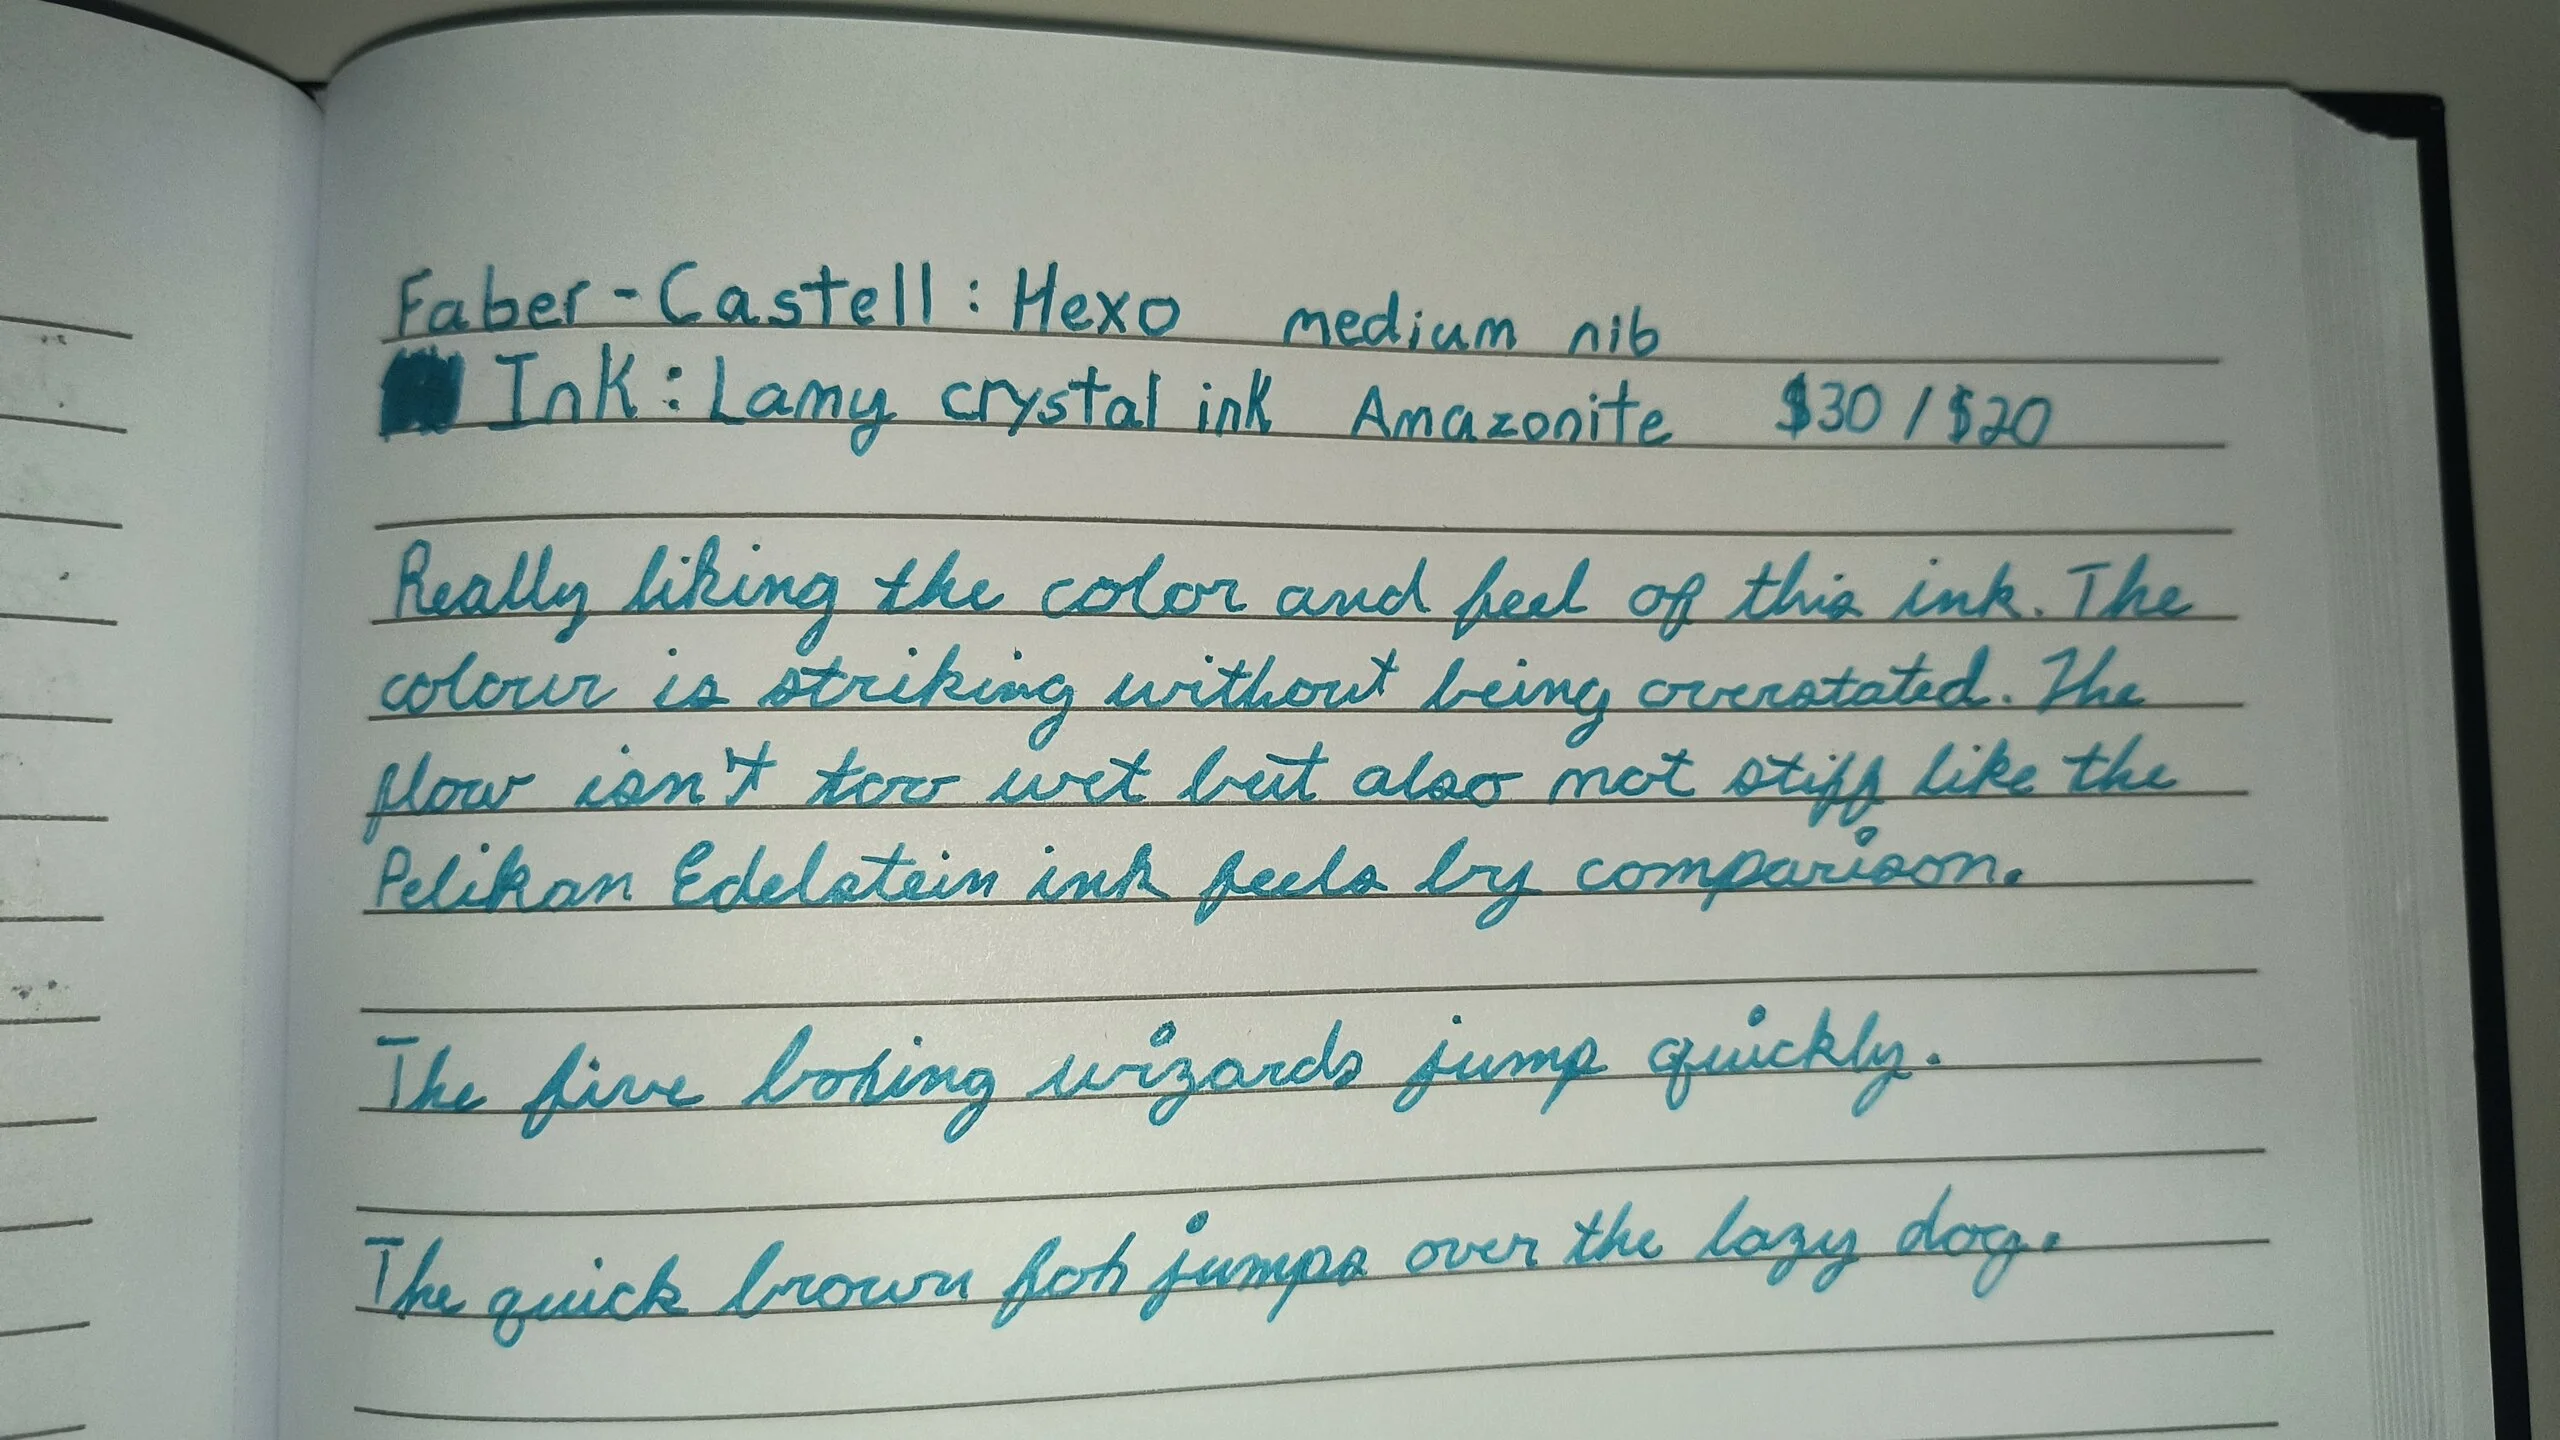 Faber-Castell: Hexo medium nib
Ink: Lamy crystal ink Amazonite $30 / $20
Really liking the color and feel of this ink. The
colour is striking without being overstated. The
flow isn't too wet but also not stiff like the
Pelikan Edelstein ink feels by comparison.
The five boxing wizards jump quickly.
The quick brown fox jumps over the lazy dog.